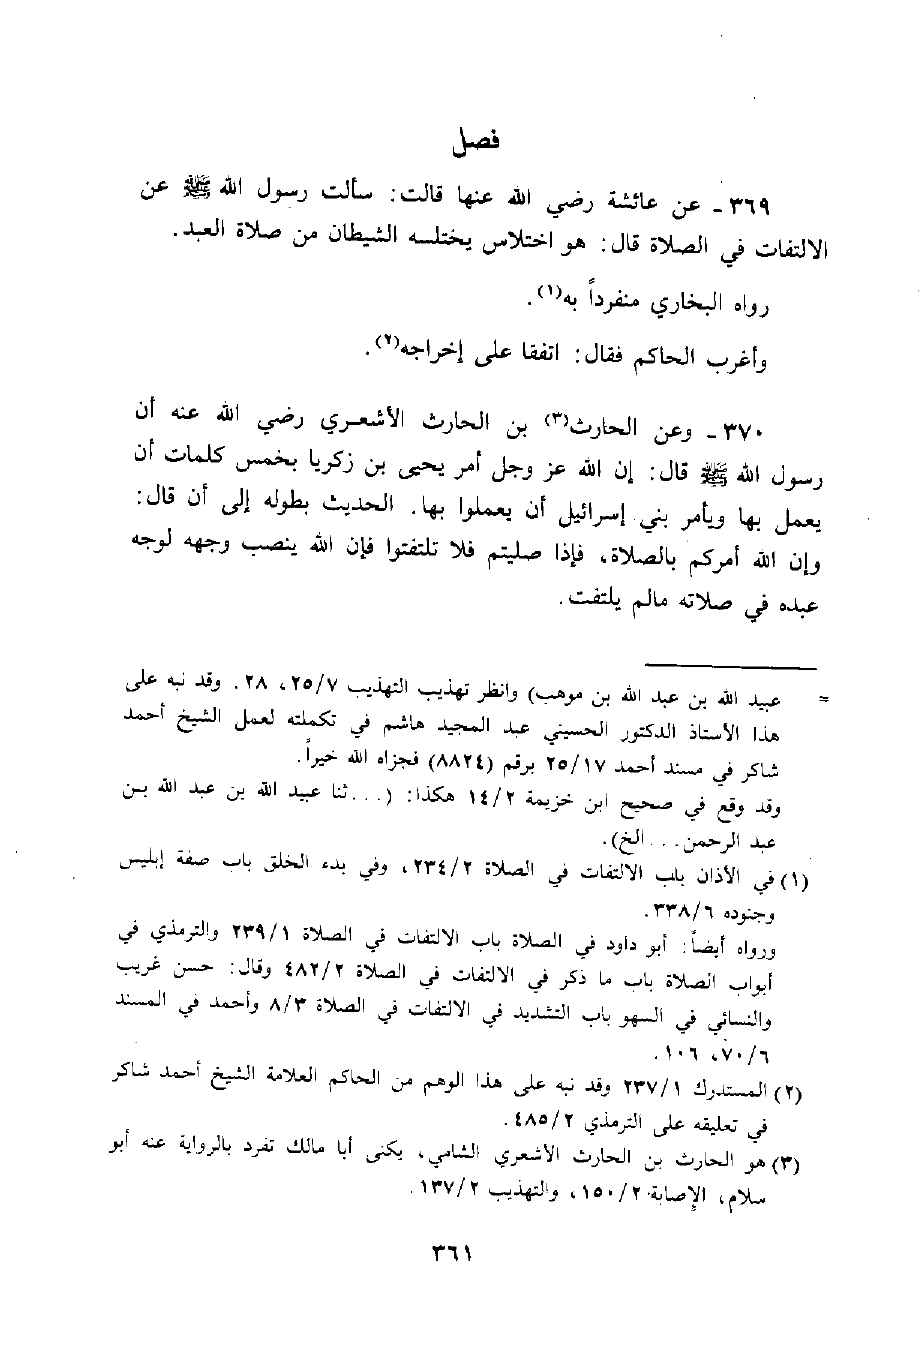 فصل
٣٦٩ - عن عائشة رضي الله عنها قالت: سألت رسول الله ﷺ عن
الالتفات في الصلاة قال: هو اختلاس يختلسه الشيطان من صلاة العبد.
رواه البخاري منفرداً به(١).
وأغرب الحاكم فقال: اتفقا على إخراجه(٢).
٣٧٠ - وعن الحارث(٣) بن الحارث الأشعري رضي الله عنه أن
رسول الله ﷺ قال: إن الله عز وجل أمر يحيى بن زكريا بخمس كلمات أن
يعمل بها ويأمر بني إسرائيل أن يعملوا بها. الحديث بطوله إلى أن قال:
وإن الله أمركم بالصلاة، فإذا صليتم فلا تلتفتوا فإن الله ينصب وجهه لوجه
عبده في صلاته مالم يلتفت.
= عبيد الله بن عبد الله بن موهب) وانظر تهذيب التهذيب ٢٥/٧، ٢٨. وقد نبه على
هذا الأستاذ الدكتور الحسيني عبد المجيد هاشم في تكملته لعمل الشيخ أحمد
شاكر في مسند أحمد ٢٥/١٧ برقم (٨٨٢٤) فجزاه الله خيراً.
وقد وقع في صحيح ابن خزيمة ١٤/٢ هكذا: (...ثنا عبيد الله بن عبد الله بن
عبد الرحمن... الخ).
(١) في الأذان باب الالتفات في الصلاة ٢٣٤/٢، وفي بدء الخلق باب صفة إبليس
وجنوده ٣٣٨/٦.
ورواه أيضاً: أبو داود في الصلاة باب الالتفات في الصلاة ٢٣٩/١ والترمذي في
أبواب الصلاة باب ما ذكر في الالتفات في الصلاة ٤٨٢/٢ وقال: حسن غريب
والنسائي في السهو باب التشديد في الالتفات في الصلاة ٨/٣ وأحمد في المسند
٧٠/٦، ١٠٦.
(٢) المستدرك ٢٣٧/١ وقد نبه على هذا الوهم من الحاكم العلامة الشيخ أحمد شاكر
في تعليقه على الترمذي ٤٨٥/٢.
(٣) هو الحارث بن الحارث الأشعري الشامي، يكنى أبا مالك تفرد بالرواية عنه أبو
سلام، الإصابة ١٥٠/٢، والتهذيب ١٣٧/٢.
٣٦١